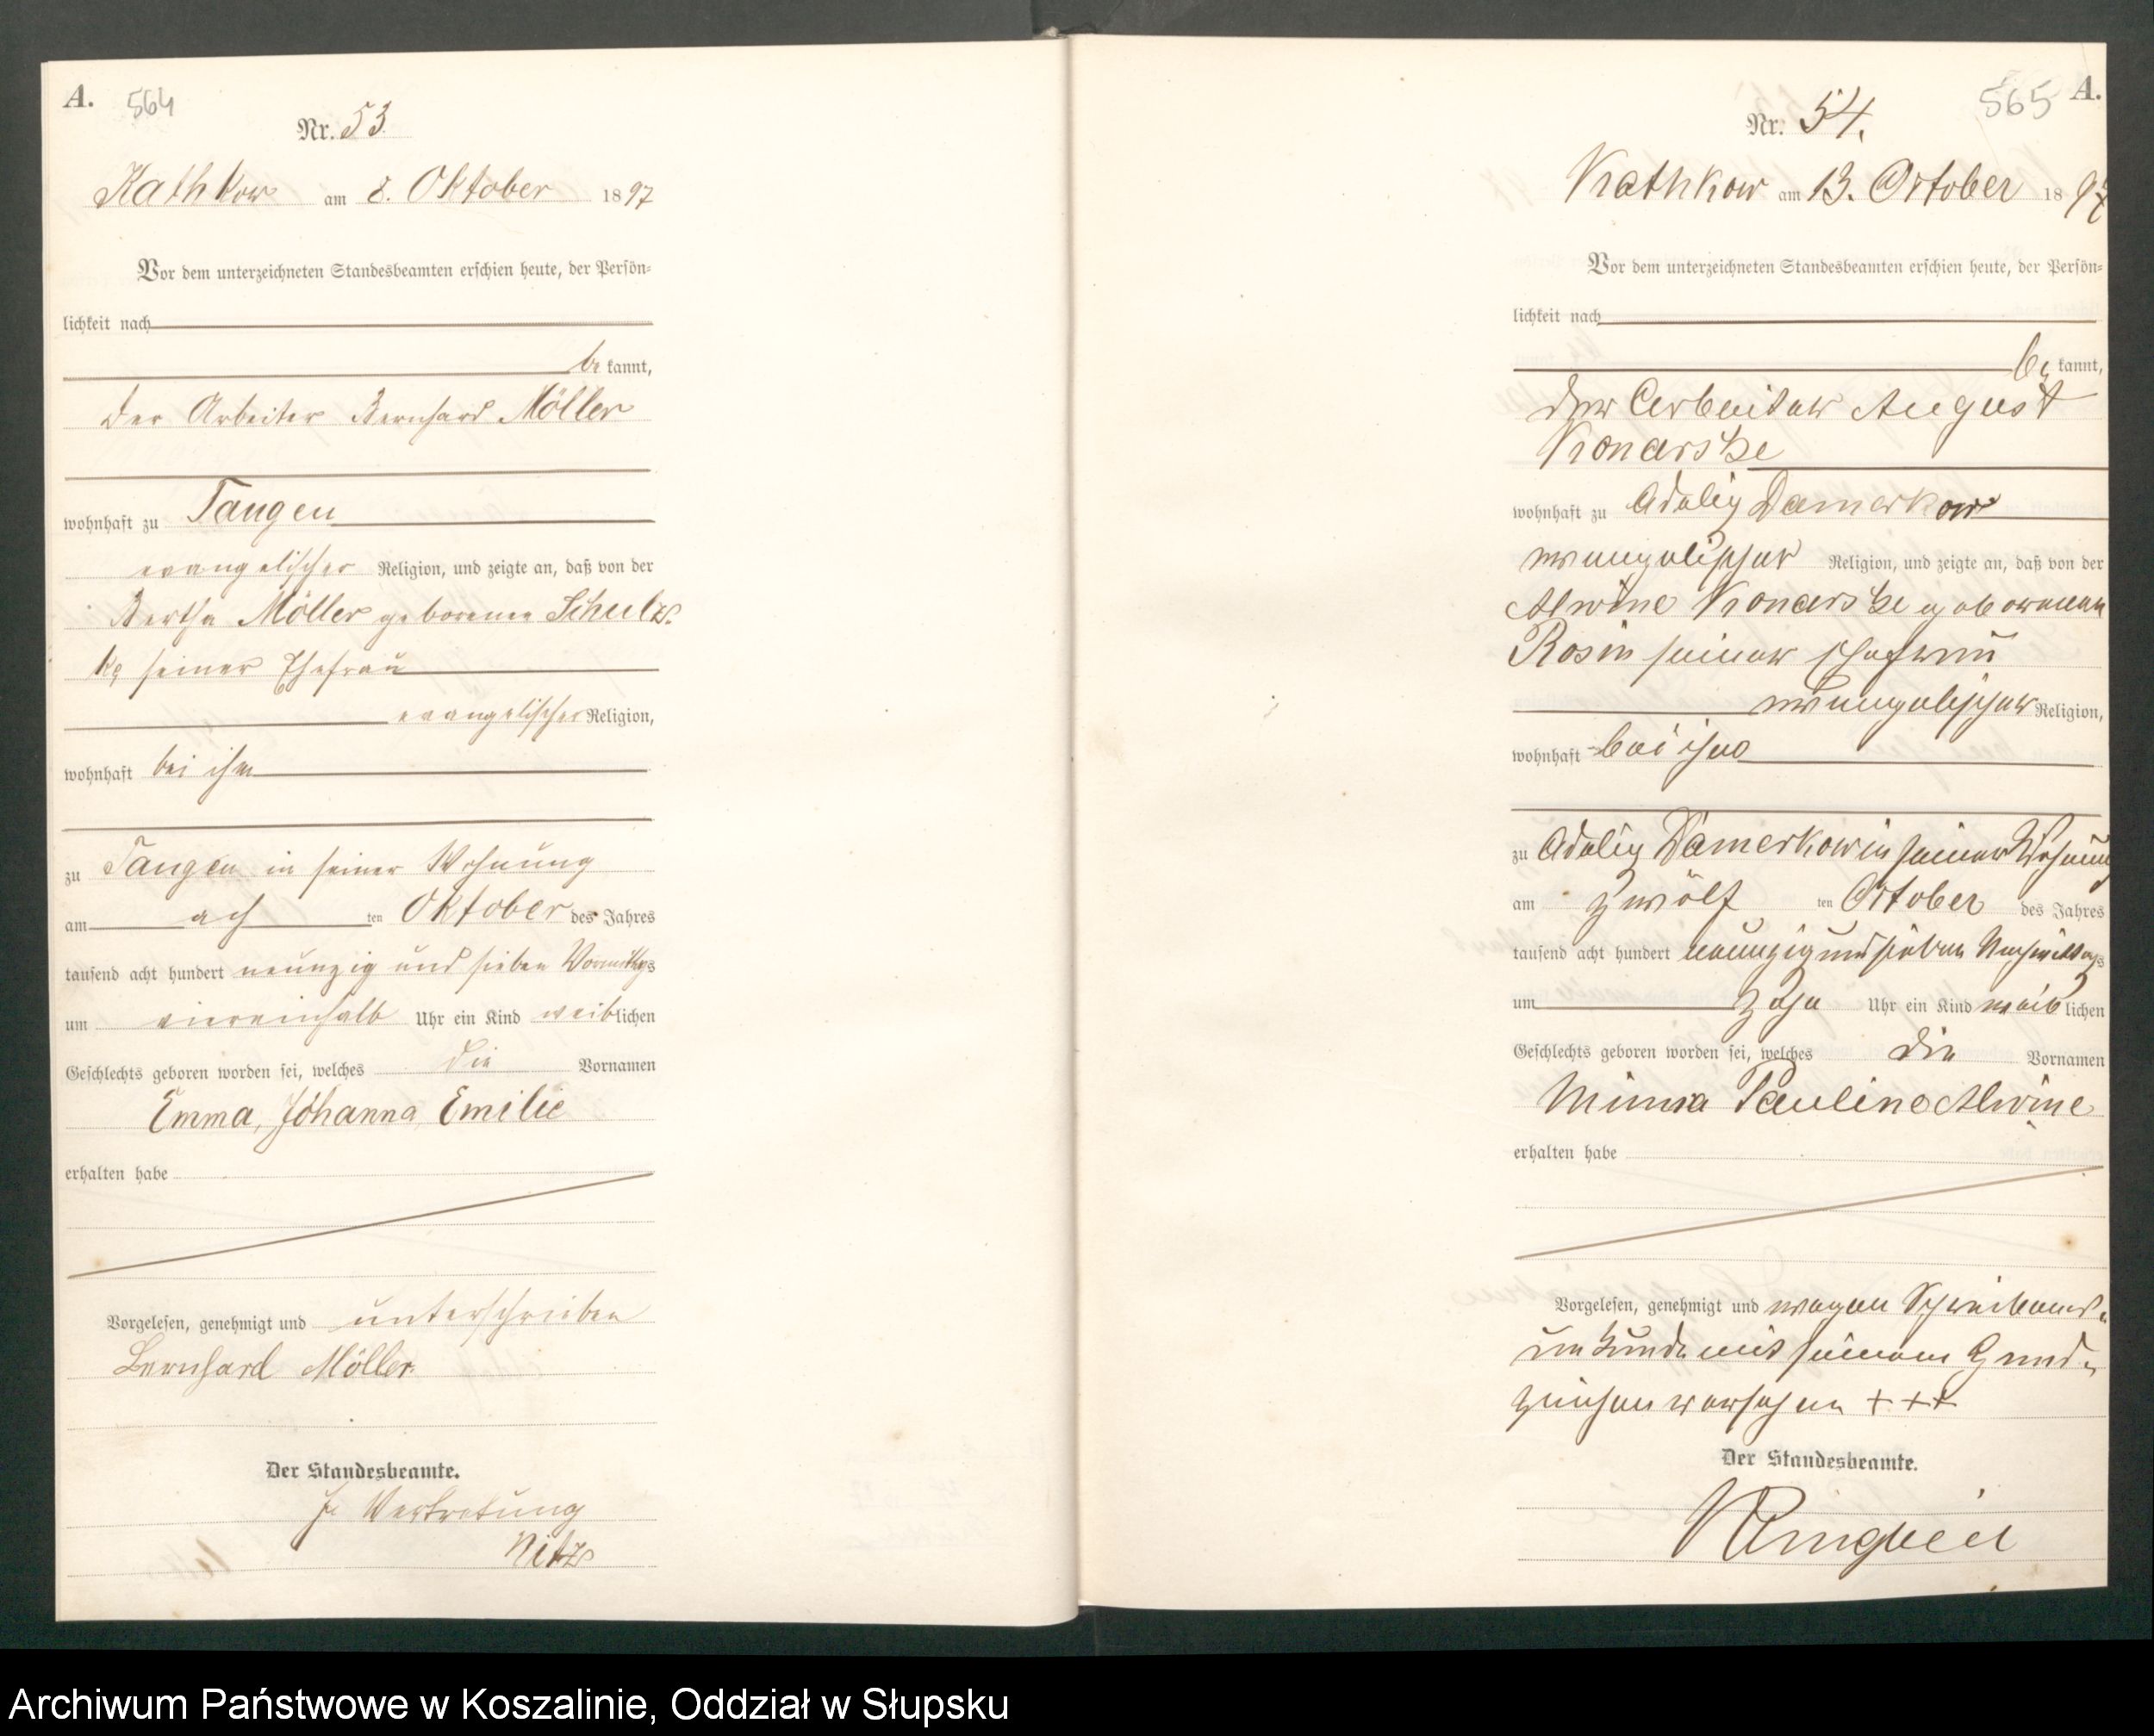 A. 564
Nr. 53.
Kathkow am 8. Oktober 1897
Vor dem unterzeichneten Standesbeamten erschien heute, der Persön-
lichkeit nach
be kannt,
der Arbeiter Bernhard Möller
wohnhaft zu Tangen
evangelischer Religion, und zeigte an, daß von der
Bertha Möller geborenen Schulz-
ke seiner Ehefrau
evangelischer Religion,
wohnhaft bei ihm
zu Tangen in seiner Wohnung
am ach ten Oktober des Jahres
tausend acht hundert neunzig und sieben Vormittags
um viereinhalb Uhr ein Kind weiblichen
Geschlechts geboren worden sei, welches die Vornamen
Emma, Johanna Emilie
erhalten habe
Vorgelesen, genehmigt und unterschrieben
Bernhard Möller.
Der Standesbeamte.
In Vertretung
Nitz
565 A.
Nr. 54.
Kathkow am 13. October 1897
Vor dem unterzeichneten Standesbeamten erschien heute, der Persön-
lichkeit nach
be kannt,
der Arbeiter August
Konarske
wohnhaft zu Adelig Damerkow
evangelischer Religion, und zeigte an, daß von der
Alwine Konarske geborenen
Rosin seiner Ehefrau
evangelischer Religion,
wohnhaft bei ihm
zu Adelig Damerkow in seiner Wohnung
am zwölf ten October des Jahres
tausend acht hundert neunzig und sieben Nachmittags
um zehn Uhr ein Kind weiblichen
Geschlechts geboren worden sei, welches die Vornamen
Minna Pauline Alwine
erhalten habe
Vorgelesen, genehmigt und wegen Schreibens-
unkunde mit seinem Hand-
zeichen versehen +++
Der Standesbeamte.
Archiwum Państwowe w Koszalinie, Oddział w Słupsku